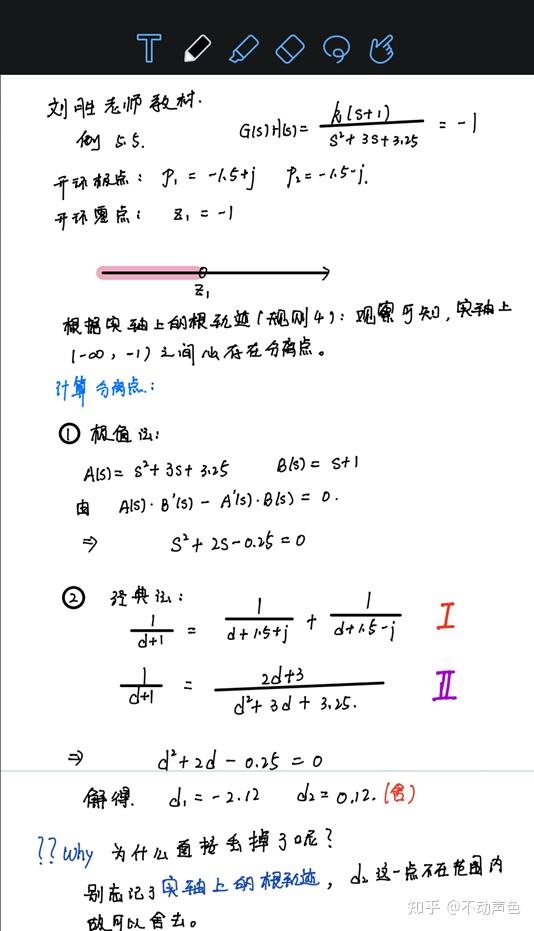 刘胜老师教材.
例 5.5. G(s)H(s)= k(s+1) / s²+3s+3.25 = -1
开环极点: P₁ = -1.5+j P₂=-1.5-j.
开环零点: Z₁ = -1
Z₁
根据实轴上的根轨迹(规则4): 观察可知, 实轴上
(-∞, -1) 之间必存在分离点。
计算分离点:
① 极值法:
A(s)= s²+3s+3.25 B(s)= s+1
由 A(s)·B'(s) - A'(s)·B(s) = 0.
⇒ s²+2s-0.25=0
② 经典法:
1/(d+1) = 1/(d+1.5+j) + 1/(d+1.5-j) I
1/(d+1) = (2d+3)/(d²+3d+3.25.) II
⇒ d²+2d-0.25=0
解得. d₁=-2.12 d₂=0.12.(舍)
??why 为什么直接丢掉了呢?
别忘记了实轴上的根轨迹, d₂这一点不在范围内
故可以舍去。
知乎 @不动声色